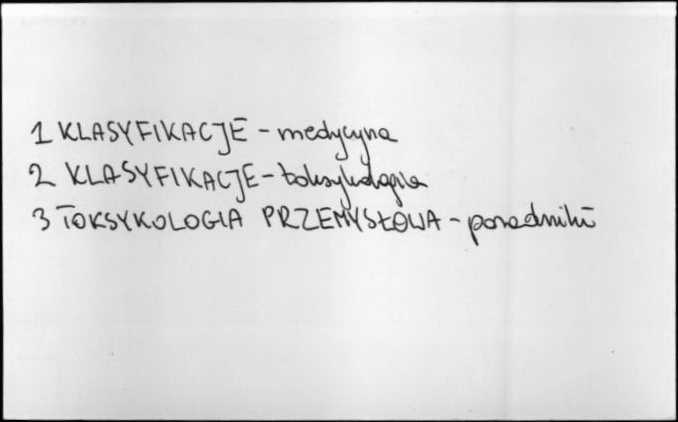 1 KLASYFIKACJE - medycyna
2 KLASYFIKACJE - toksykologia
3 TOKSYKOLOGIA PRZEMYSŁOWA - poradniki